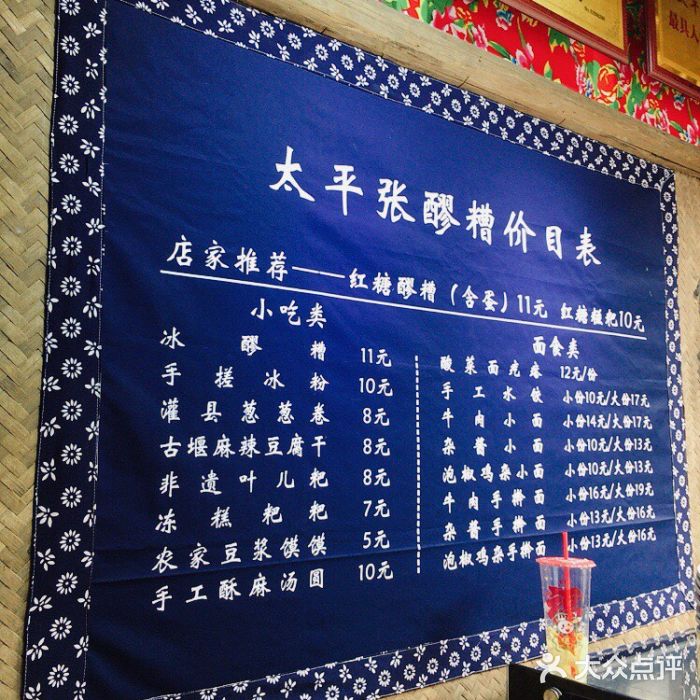 太平张醪糟价目表
店家推荐——红糖醪糟(含蛋)11元 红糖糍粑10元
小吃类
冰醪糟 11元
手搓冰粉 10元
灌县葱葱卷 8元
古堰麻辣豆腐干 8元
非遗叶儿粑 8元
冻糕粑粑 7元
农家豆浆馍馍 5元
手工酥麻汤圆 10元
面食类
酸菜面疙瘩 12元/份
手工水饺 小份10元/大份17元
牛肉小面 小份14元/大份17元
杂酱小面 小份10元/大份13元
泡椒鸡杂小面 小份10元/大份13元
牛肉手擀面 小份16元/大份19元
杂酱手擀面 小份13元/大份16元
泡椒鸡杂手擀面 小份13元/大份16元
大众点评